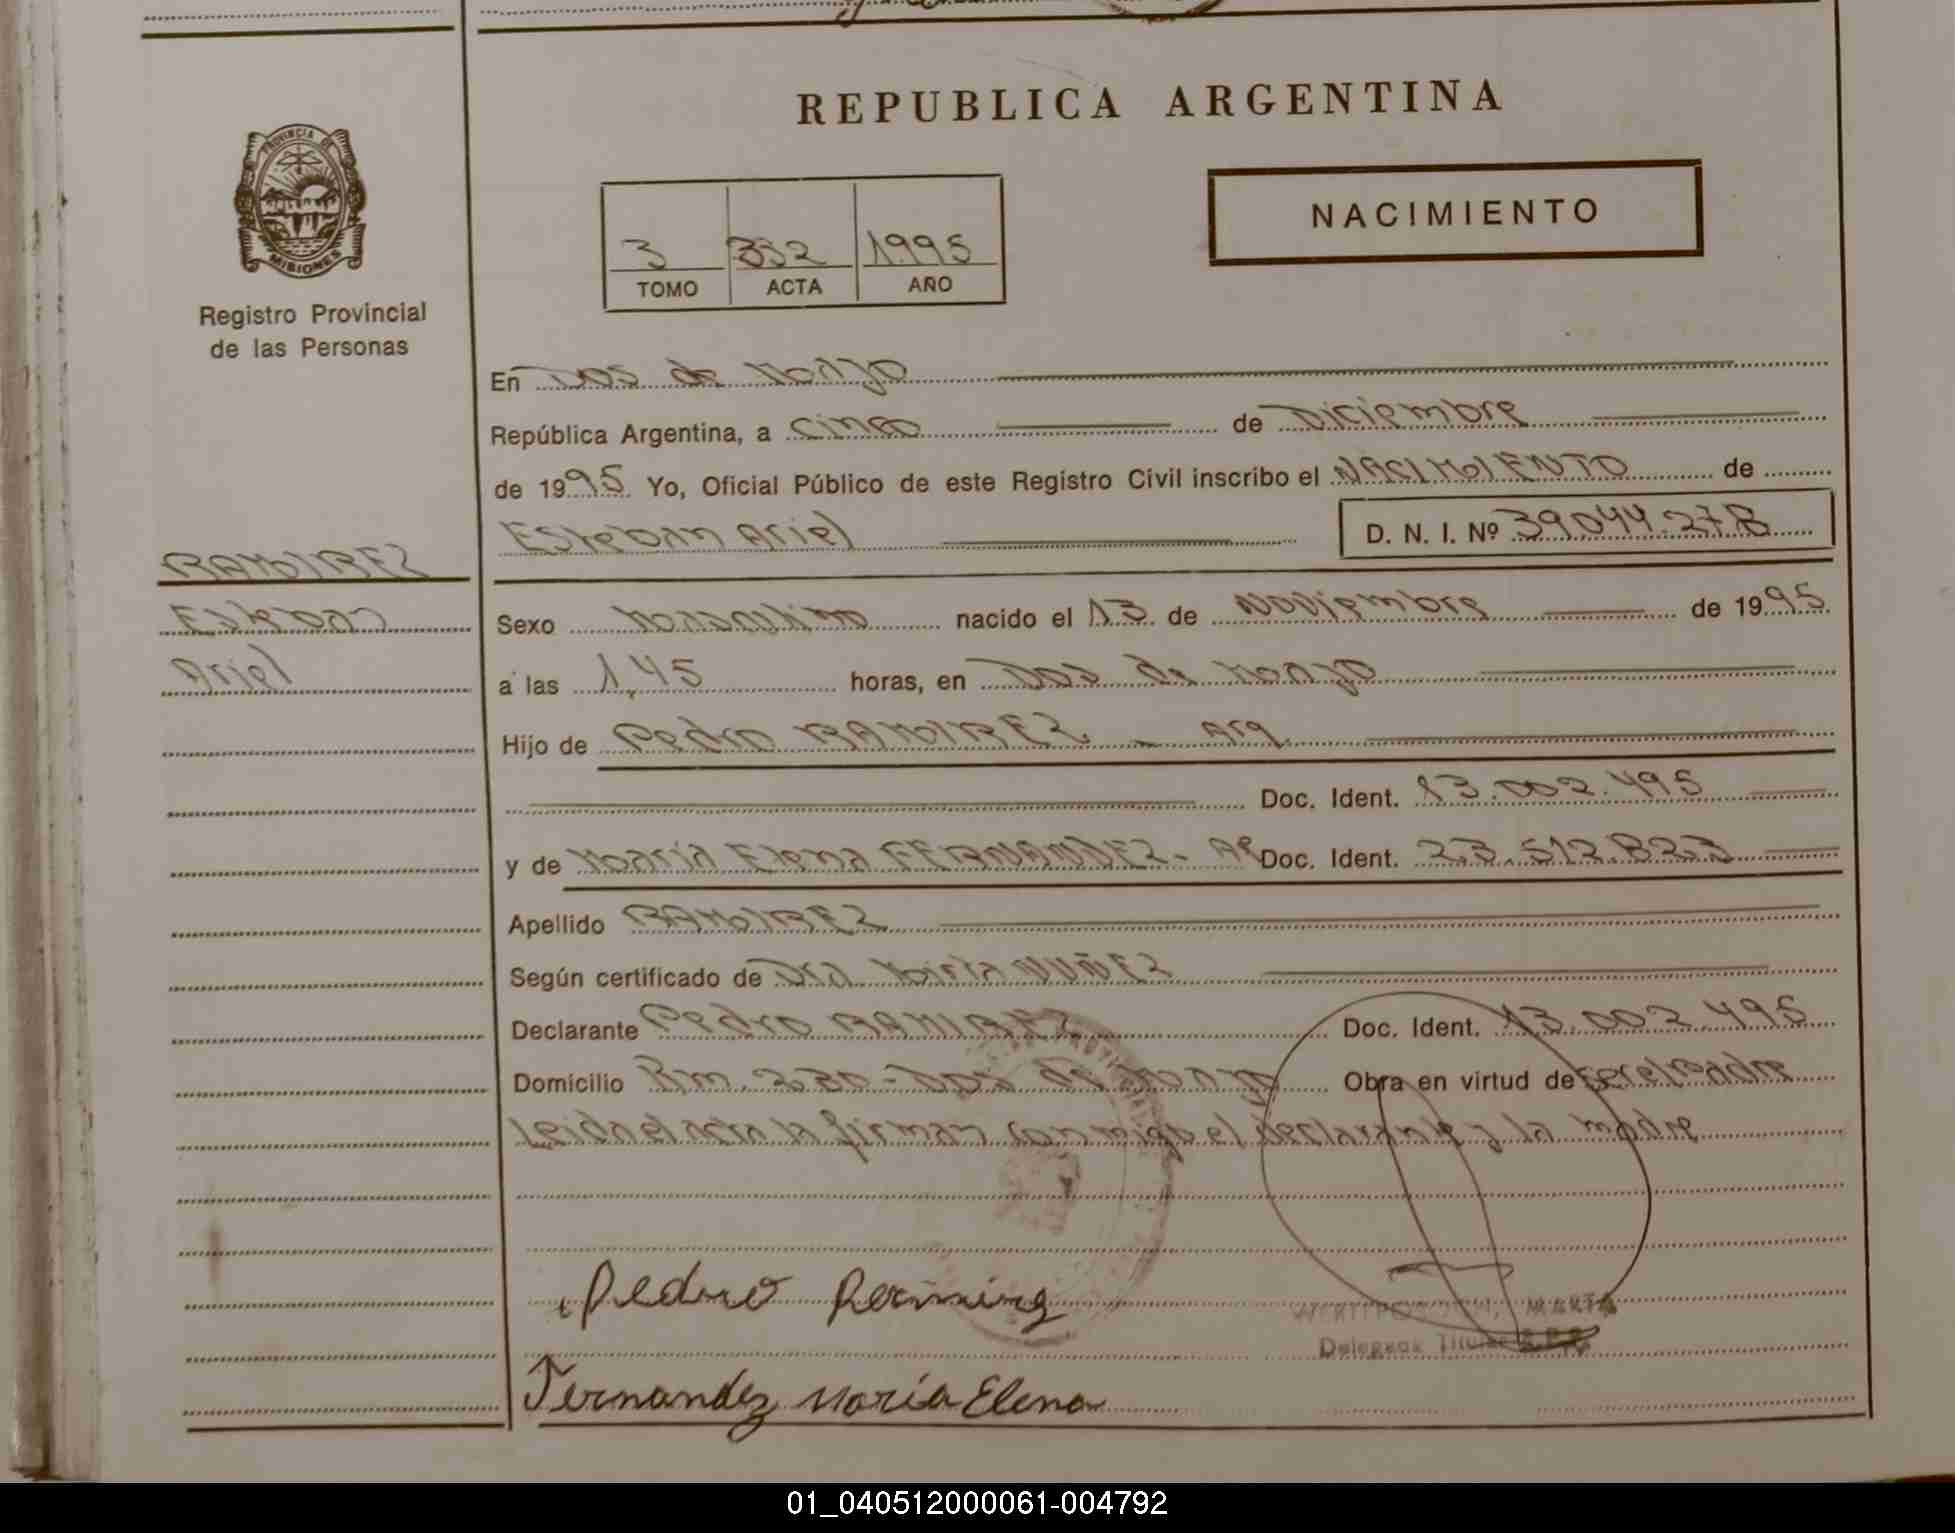 REPUBLICA ARGENTINA
PROVINCIA DE MISIONES
Registro Provincial
de las Personas
3 332 1995
TOMO ACTA AÑO
NACIMIENTO
En Dos de Mayo
República Argentina, a cinco de Diciembre
de 1995 Yo, Oficial Público de este Registro Civil inscribo el NACIMIENTO de
Esteban Ariel D. N. I. Nº 39.044.278
RAMIREZ
Esteban
Ariel
Sexo Masculino nacido el 13 de Noviembre de 1995
a las 1,45 horas, en Dos de Mayo
Hijo de Pedro RAMIREZ - Arg.
Doc. Ident. 13.002.495
y de María Elena FERNANDEZ - Doc. Ident. 23.512.823
Apellido RAMIREZ
Según certificado de Dra. Mirta NUÑEZ
Declarante Pedro RAMIREZ Doc. Ident. 13.002.495
Domicilio Km. 230 - Dos de Mayo Obra en virtud de ser el padre
Leida el acta la firman conmigo el declarante y la madre
Pedro Ramirez
MARTA
Delegada Titular
Fernandez María Elena
01_040512000061-004792